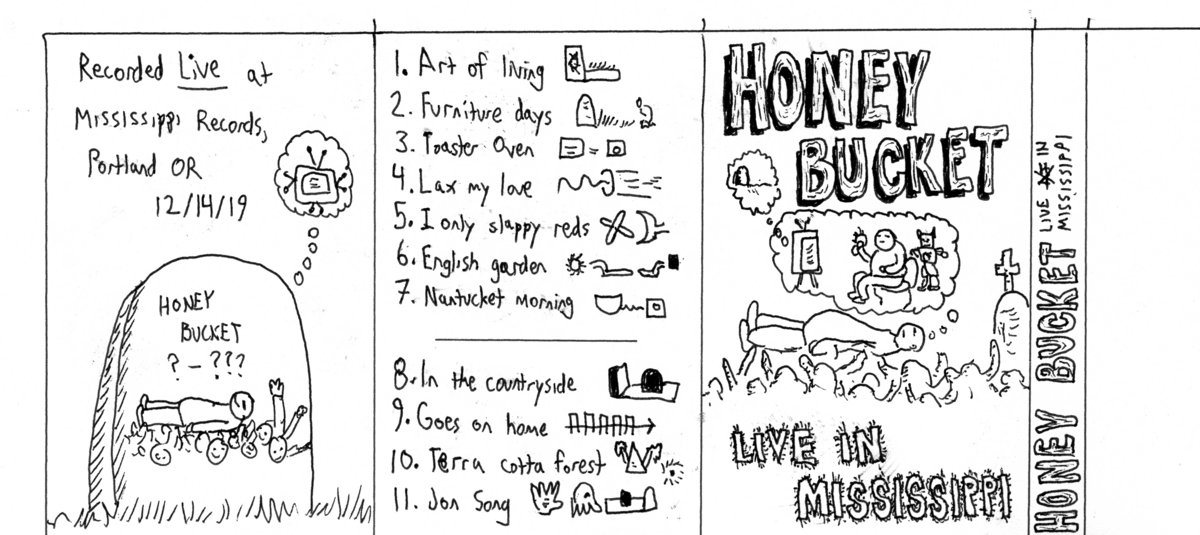 Recorded Live at
Mississippi Records,
Portland OR
12/14/19
HONEY
BUCKET
? - ???
1. Art of living
2. Furniture days
3. Toaster Oven
4. Lax my love
5. I only slappy reds
6. English garden
7. Nantucket morning
8. In the countryside
9. Goes on home
10. Terra cotta forest
11. Jon Song
HONEY
BUCKET
LIVE IN
MISSISSIPPI
HONEY BUCKET
LIVE IN
MISSISSIPPI